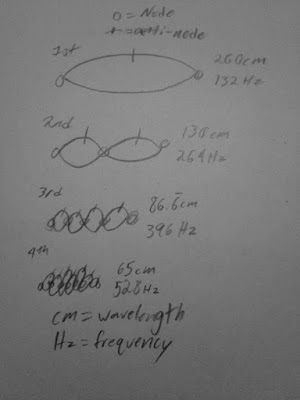 o = Node
+ = anti-node
1st
260cm
132 Hz
2nd
130cm
264 Hz
3rd
86.6cm
396 Hz
4th
65cm
528 Hz
cm = wavelength
Hz = frequency